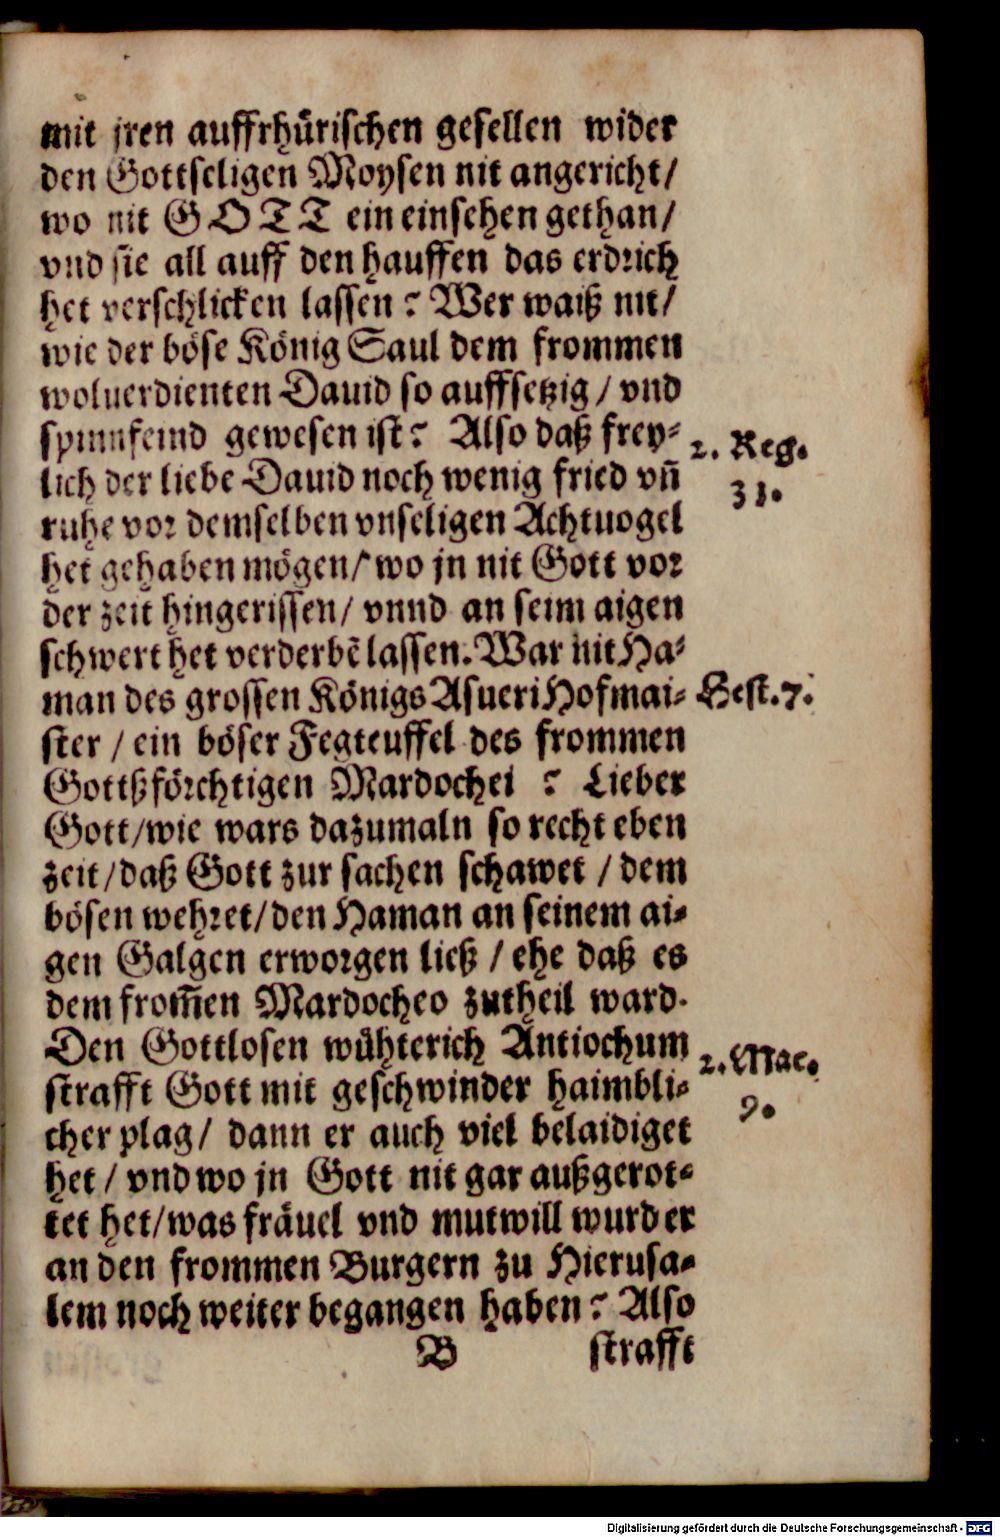 mit jren auffrhürischen gesellen wider
den Gottseligen Moysen nit angericht/
wo nit GOTT ein einsehen gethan/
vnd sie all auff den hauffen das erdrich
het verschlicken lassen? Wer waiß nit/
wie der böse König Saul dem frommen
woluerdienten Dauid so auffsetzig/ vnd
spinnfeind gewesen ist? Also daß frey-
2. Reg.
lich der liebe Dauid noch wenig fried vñ
31.
ruhe vor demselben vnseligen Achtuogel
het gehaben mögen/ wo jn nit Gott vor
der zeit hingerissen/ vnnd an seim aigen
schwert het verderbẽ lassen. War nit Ha-
man des grossen Königs Asueri Hofmai-
Hest. 7.
ster/ ein böser Fegteuffel des frommen
Gottßförchtigen Mardochei? Lieber
Gott/wie wars dazumaln so recht eben
zeit/daß Gott zur sachen schawet/ dem
bösen wehret/den Haman an seinem ai-
gen Galgen erworgen ließ/ ehe daß es
dem from̃en Mardocheo zutheil ward.
Den Gottlosen wühterich Antiochum
2. Mac.
strafft Gott mit geschwinder haimbli-
9.
cher plag/ dann er auch viel belaidiget
het/ vnd wo jn Gott nit gar außgerot-
tet het/was fräuel vnd mutwill wurd er
an den frommen Burgern zu Hierusa-
lem noch weiter begangen haben? Also
B strafft
Digitalisierung gefördert durch die Deutsche Forschungsgemeinschaft - DFG